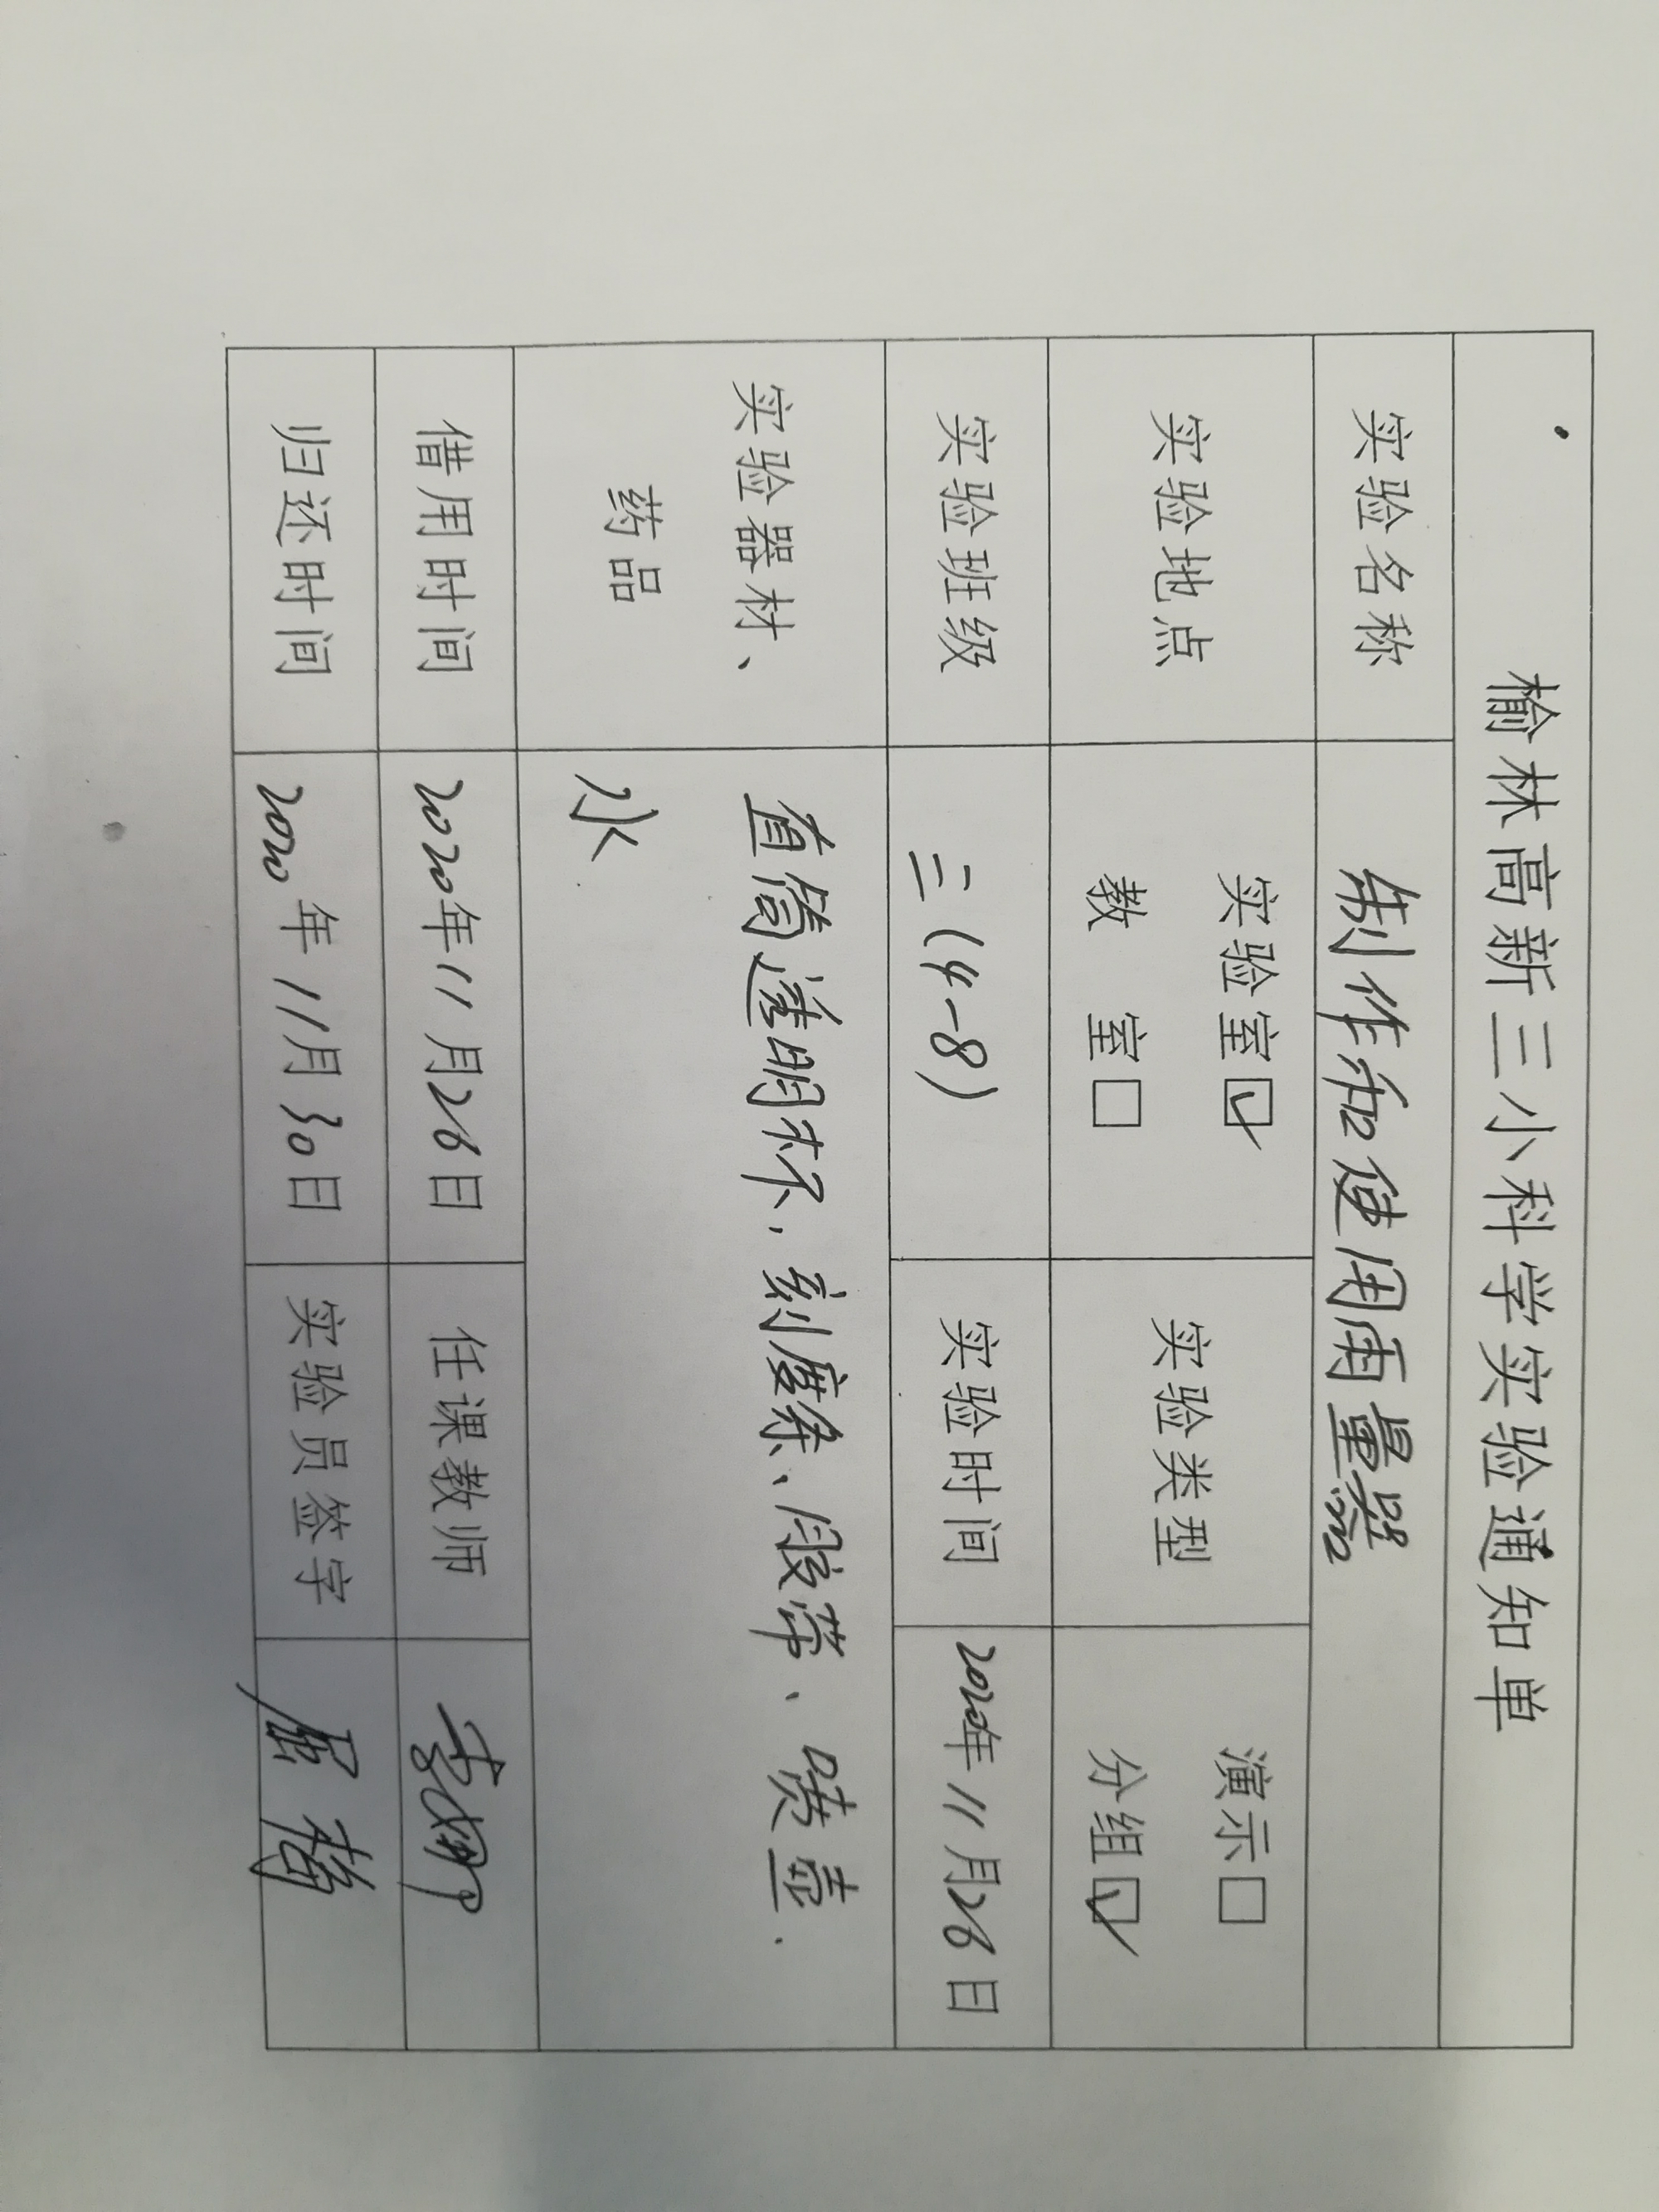 榆林高新三小科学实验通知单
实验名称 制作和使用雨量器
实验地点 实验室☑ 教 室□ 实验类型 演示□ 分组☑
实验班级 三(4-8) 实验时间 2020年11月26日
实验器材、药品 直筒透明杯,刻度条、胶带、喷壶.
水
借用时间 2020年11月26日 任课教师
归还时间 2020年11月30日 实验员签字 屈